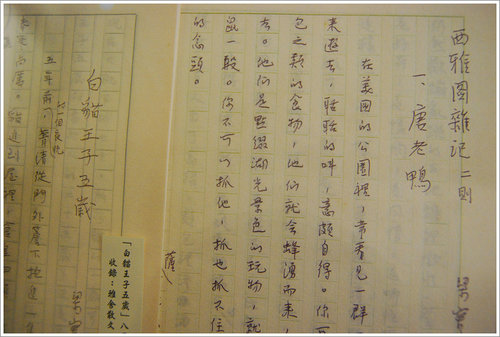 西雅圖雜記 二則
梁實
一、唐老鴨
在美國的公園裡,常看見一群
來遊去,聒聒的叫,意頗自得。你可
包之類的食物,他们就會蜂湧而來,
去。他们是點綴湖光景色的玩物,就
鼠一般。你不可以抓他,抓也抓不住
的念頭。
「白貓王子五歲」八
收錄:雅舍散文
白貓王子五歲
梁實
五年前,菁清從門外簷下抱進一